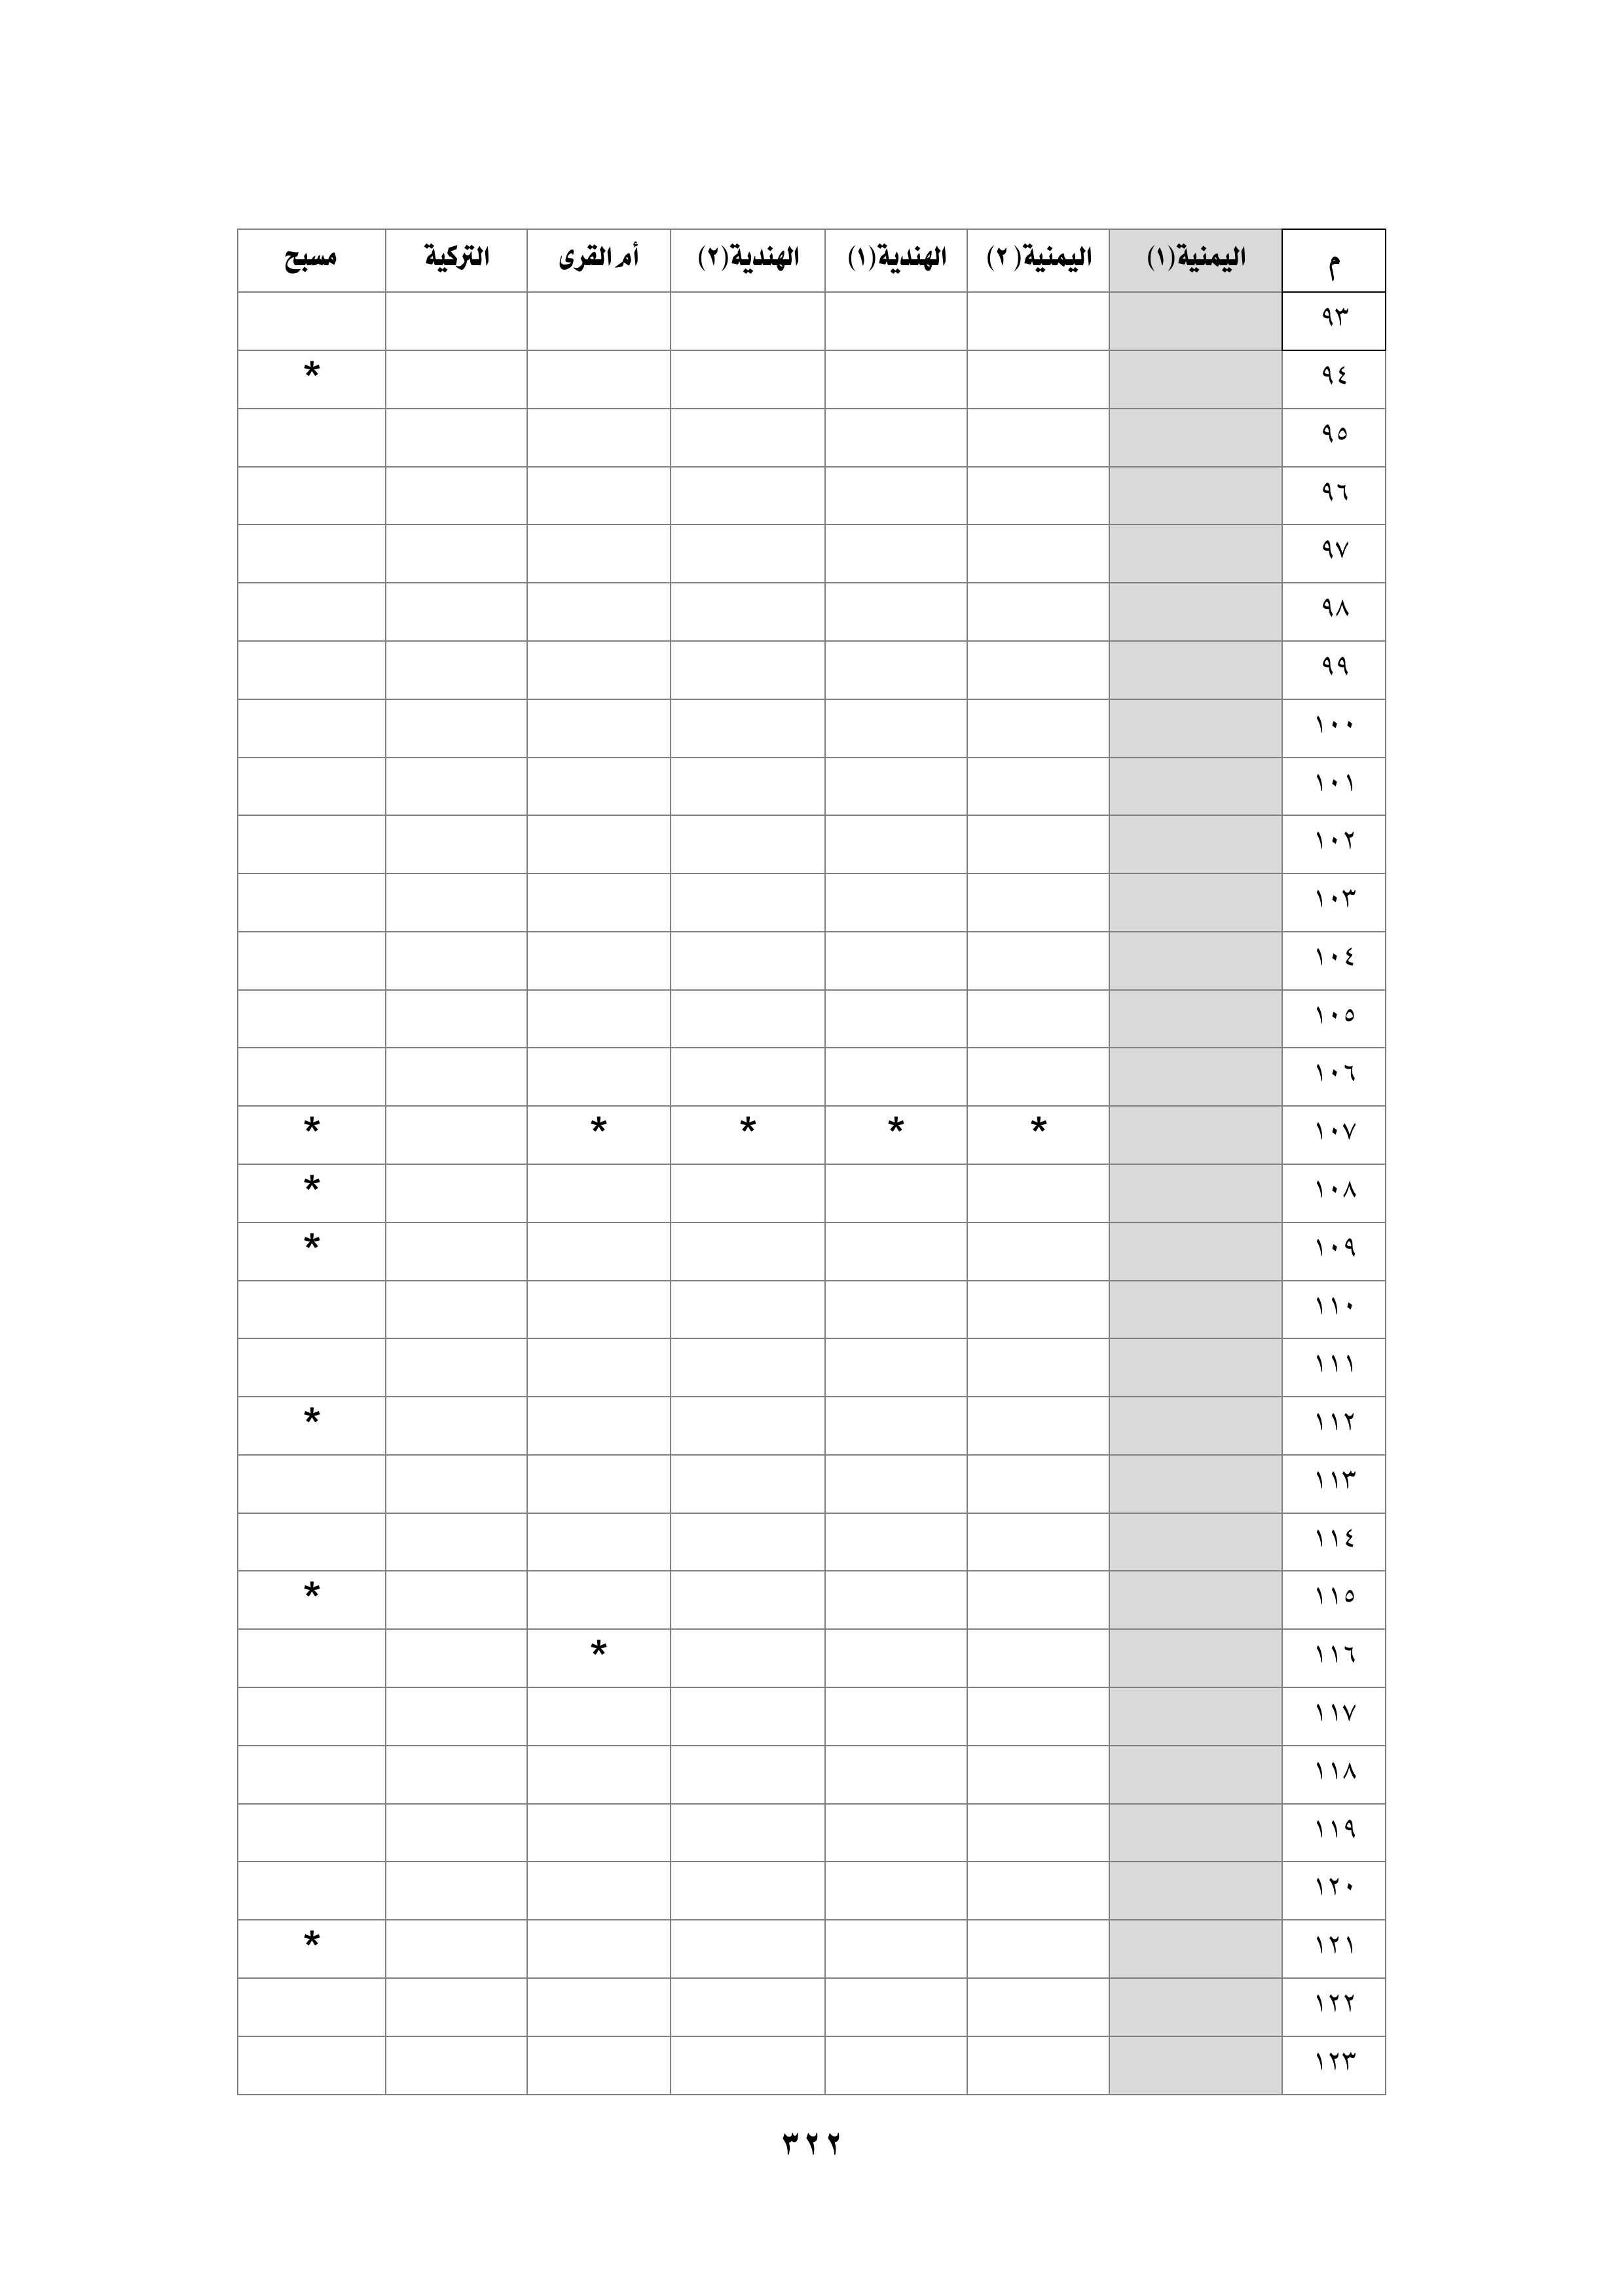 م اليمنية(١) اليمنية( ٢) الهندية(١) الهندية(٢) أم القرى التركية مسبح
٩٣
٩٤ *
٩٥
٩٦
٩٧
٩٨
٩٩
١٠٠
١٠١
١٠٢
١٠٣
١٠٤
١٠٥
١٠٦
١٠٧ * * * * *
١٠٨ *
١٠٩ *
١١٠
١١١
١١٢ *
١١٣
١١٤
١١٥ *
١١٦ *
١١٧
١١٨
١١٩
١٢٠
١٢١ *
١٢٢
١٢٣
٣٢٢